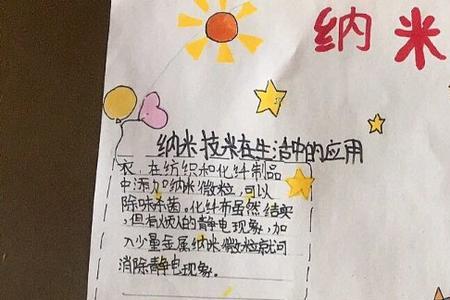 纳米
纳米技米在生活中的应用
衣，在纺织和化纤制品
中添加纳米微粒，可以
除味杀菌，化纤布虽然结实，
但有烦人的静电现象，加
入少量金属纳米微粒就可
消除静电现象。